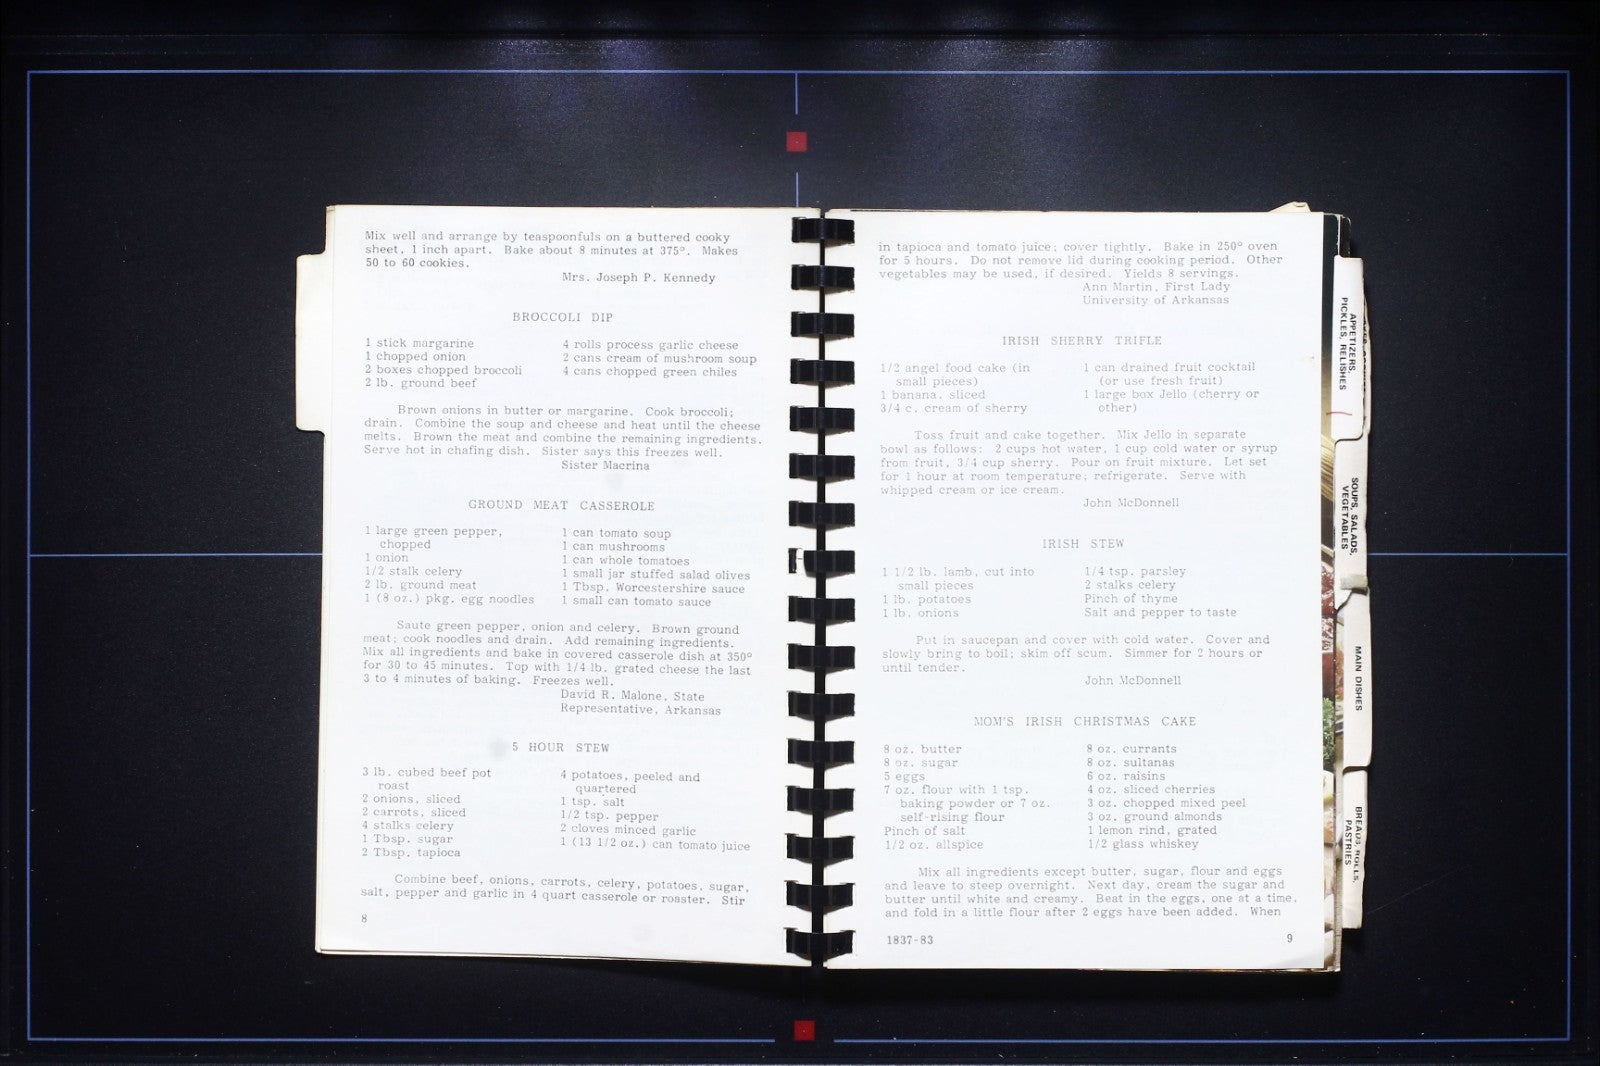 Mix well and arrange by teaspoonfuls on a buttered cooky
sheet, 1 inch apart. Bake about 8 minutes at 375°. Makes
50 to 60 cookies.
Mrs. Joseph P. Kennedy
BROCCOLI DIP
1 stick margarine
1 chopped onion
2 boxes chopped broccoli
2 lb. ground beef
4 rolls process garlic cheese
2 cans cream of mushroom soup
4 cans chopped green chiles
Brown onions in butter or margarine. Cook broccoli;
drain. Combine the soup and cheese and heat until the cheese
melts. Brown the meat and combine the remaining ingredients.
Serve hot in chafing dish. Sister says this freezes well.
Sister Macrina
GROUND MEAT CASSEROLE
1 large green pepper,
chopped
1 onion
1/2 stalk celery
2 lb. ground meat
1 (8 oz.) pkg. egg noodles
1 can tomato soup
1 can mushrooms
1 can whole tomatoes
1 small jar stuffed salad olives
1 Tbsp. Worcestershire sauce
1 small can tomato sauce
Saute green pepper, onion and celery. Brown ground
meat; cook noodles and drain. Add remaining ingredients.
Mix all ingredients and bake in covered casserole dish at 350°
for 30 to 45 minutes. Top with 1/4 lb. grated cheese the last
3 to 4 minutes of baking. Freezes well.
David R. Malone, State
Representative, Arkansas
5 HOUR STEW
3 lb. cubed beef pot
roast
2 onions, sliced
2 carrots, sliced
4 stalks celery
1 Tbsp. sugar
2 Tbsp. tapioca
4 potatoes, peeled and
quartered
1 tsp. salt
1/2 tsp. pepper
2 cloves minced garlic
1 (13 1/2 oz.) can tomato juice
Combine beef, onions, carrots, celery, potatoes, sugar,
salt, pepper and garlic in 4 quart casserole or roaster. Stir
8
in tapioca and tomato juice; cover tightly. Bake in 250° oven
for 5 hours. Do not remove lid during cooking period. Other
vegetables may be used, if desired. Yields 8 servings.
Ann Martin, First Lady
University of Arkansas
IRISH SHERRY TRIFLE
1/2 angel food cake (in
small pieces)
1 banana, sliced
3/4 c. cream of sherry
1 can drained fruit cocktail
(or use fresh fruit)
1 large box Jello (cherry or
other)
Toss fruit and cake together. Mix Jello in separate
bowl as follows: 2 cups hot water, 1 cup cold water or syrup
from fruit, 3/4 cup sherry. Pour on fruit mixture. Let set
for 1 hour at room temperature; refrigerate. Serve with
whipped cream or ice cream.
John McDonnell
IRISH STEW
1 1/2 lb. lamb, cut into
small pieces
1 lb. potatoes
1 lb. onions
1/4 tsp. parsley
2 stalks celery
Pinch of thyme
Salt and pepper to taste
Put in saucepan and cover with cold water. Cover and
slowly bring to boil; skim off scum. Simmer for 2 hours or
until tender.
John McDonnell
MOM'S IRISH CHRISTMAS CAKE
8 oz. butter
8 oz. sugar
5 eggs
7 oz. flour with 1 tsp.
baking powder or 7 oz.
self-rising flour
Pinch of salt
1/2 oz. allspice
8 oz. currants
8 oz. sultanas
6 oz. raisins
4 oz. sliced cherries
3 oz. chopped mixed peel
3 oz. ground almonds
1 lemon rind, grated
1/2 glass whiskey
Mix all ingredients except butter, sugar, flour and eggs
and leave to steep overnight. Next day, cream the sugar and
butter until white and creamy. Beat in the eggs, one at a time,
and fold in a little flour after 2 eggs have been added. When
1837-83
9
APPETIZERS,
PICKLES, RELISHES
SOUPS, SALADS,
VEGETABLES
MAIN DISHES
BREADS, ROLLS,
PASTRIES